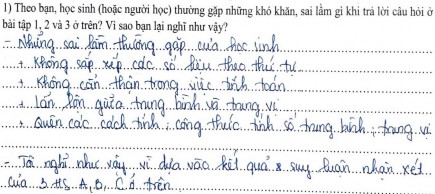 1) Theo bạn, học sinh (hoặc người học) thường gặp những khó khăn, sai lầm gì khi trả lời câu hỏi ở
bài tập 1, 2 và 3 ở trên? Vì sao bạn lại nghĩ như vậy?
- Những sai lầm thường gặp của học sinh
+ Không sắp xếp các số liệu theo thứ tự
+ Không cẩn thận trong việc tính toán
+ Lẫn lộn giữa trung bình và trung vị
+ Quên các cách tính; công thức tính số trung bình; trung vị
- Tôi nghĩ như vậy vì dựa vào kết quả & suy luận nhận xét
của 3 HS A, B, C ở trên.